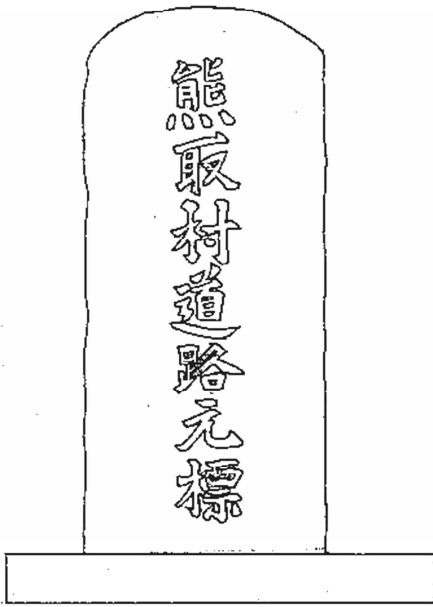 熊取村道路元標